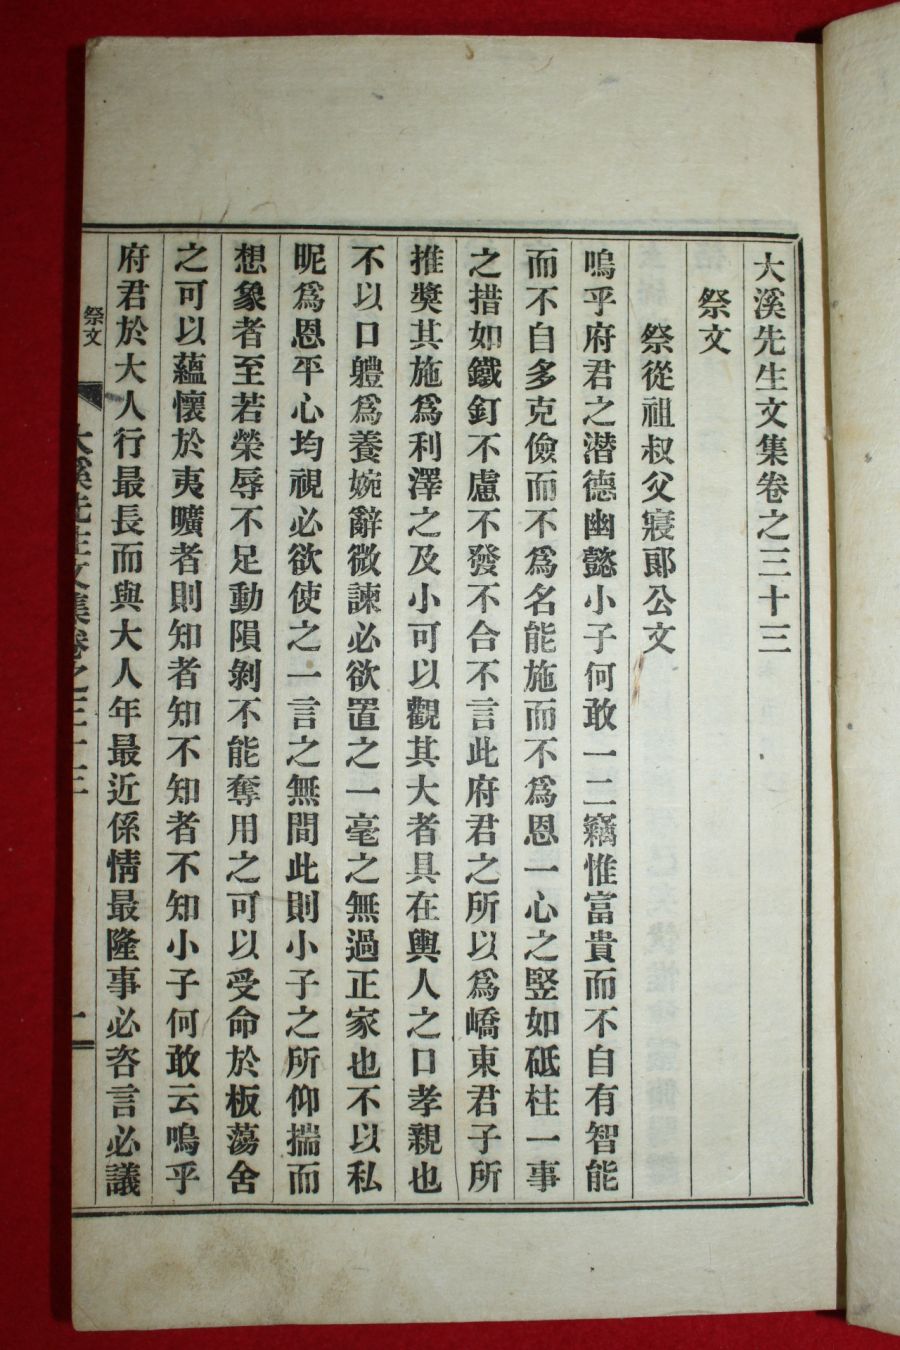 大溪先生文集卷之三十三
祭文
祭從祖叔父寢郞公文
嗚乎府君之潜德幽懿小子何敢一二竊惟富貴而不自有智能
而不自多克儉而不爲名能施而不爲恩一心之竪如砥柱一事
之措如鐵釘不慮不發不合不言此府君之所以爲嶠東君子所
推奬其施爲利澤之及小可以觀其大者具在輿人之口孝親也
不以口軆爲養婉辭微諫必欲置之一毫之無過正家也不以私
昵爲恩平心均視必欲使之一言之無間此則小子之所仰揣而
想象者至若榮辱不足動隕剝不能奪用之可以受命於板蕩舍
之可以蘊懷於夷曠者則知者知不知者不知小子何敢云嗚乎
府君於大人行最長而與大人年最近係情最隆事必咨言必議
祭文
大溪先生文集卷之三十三
一